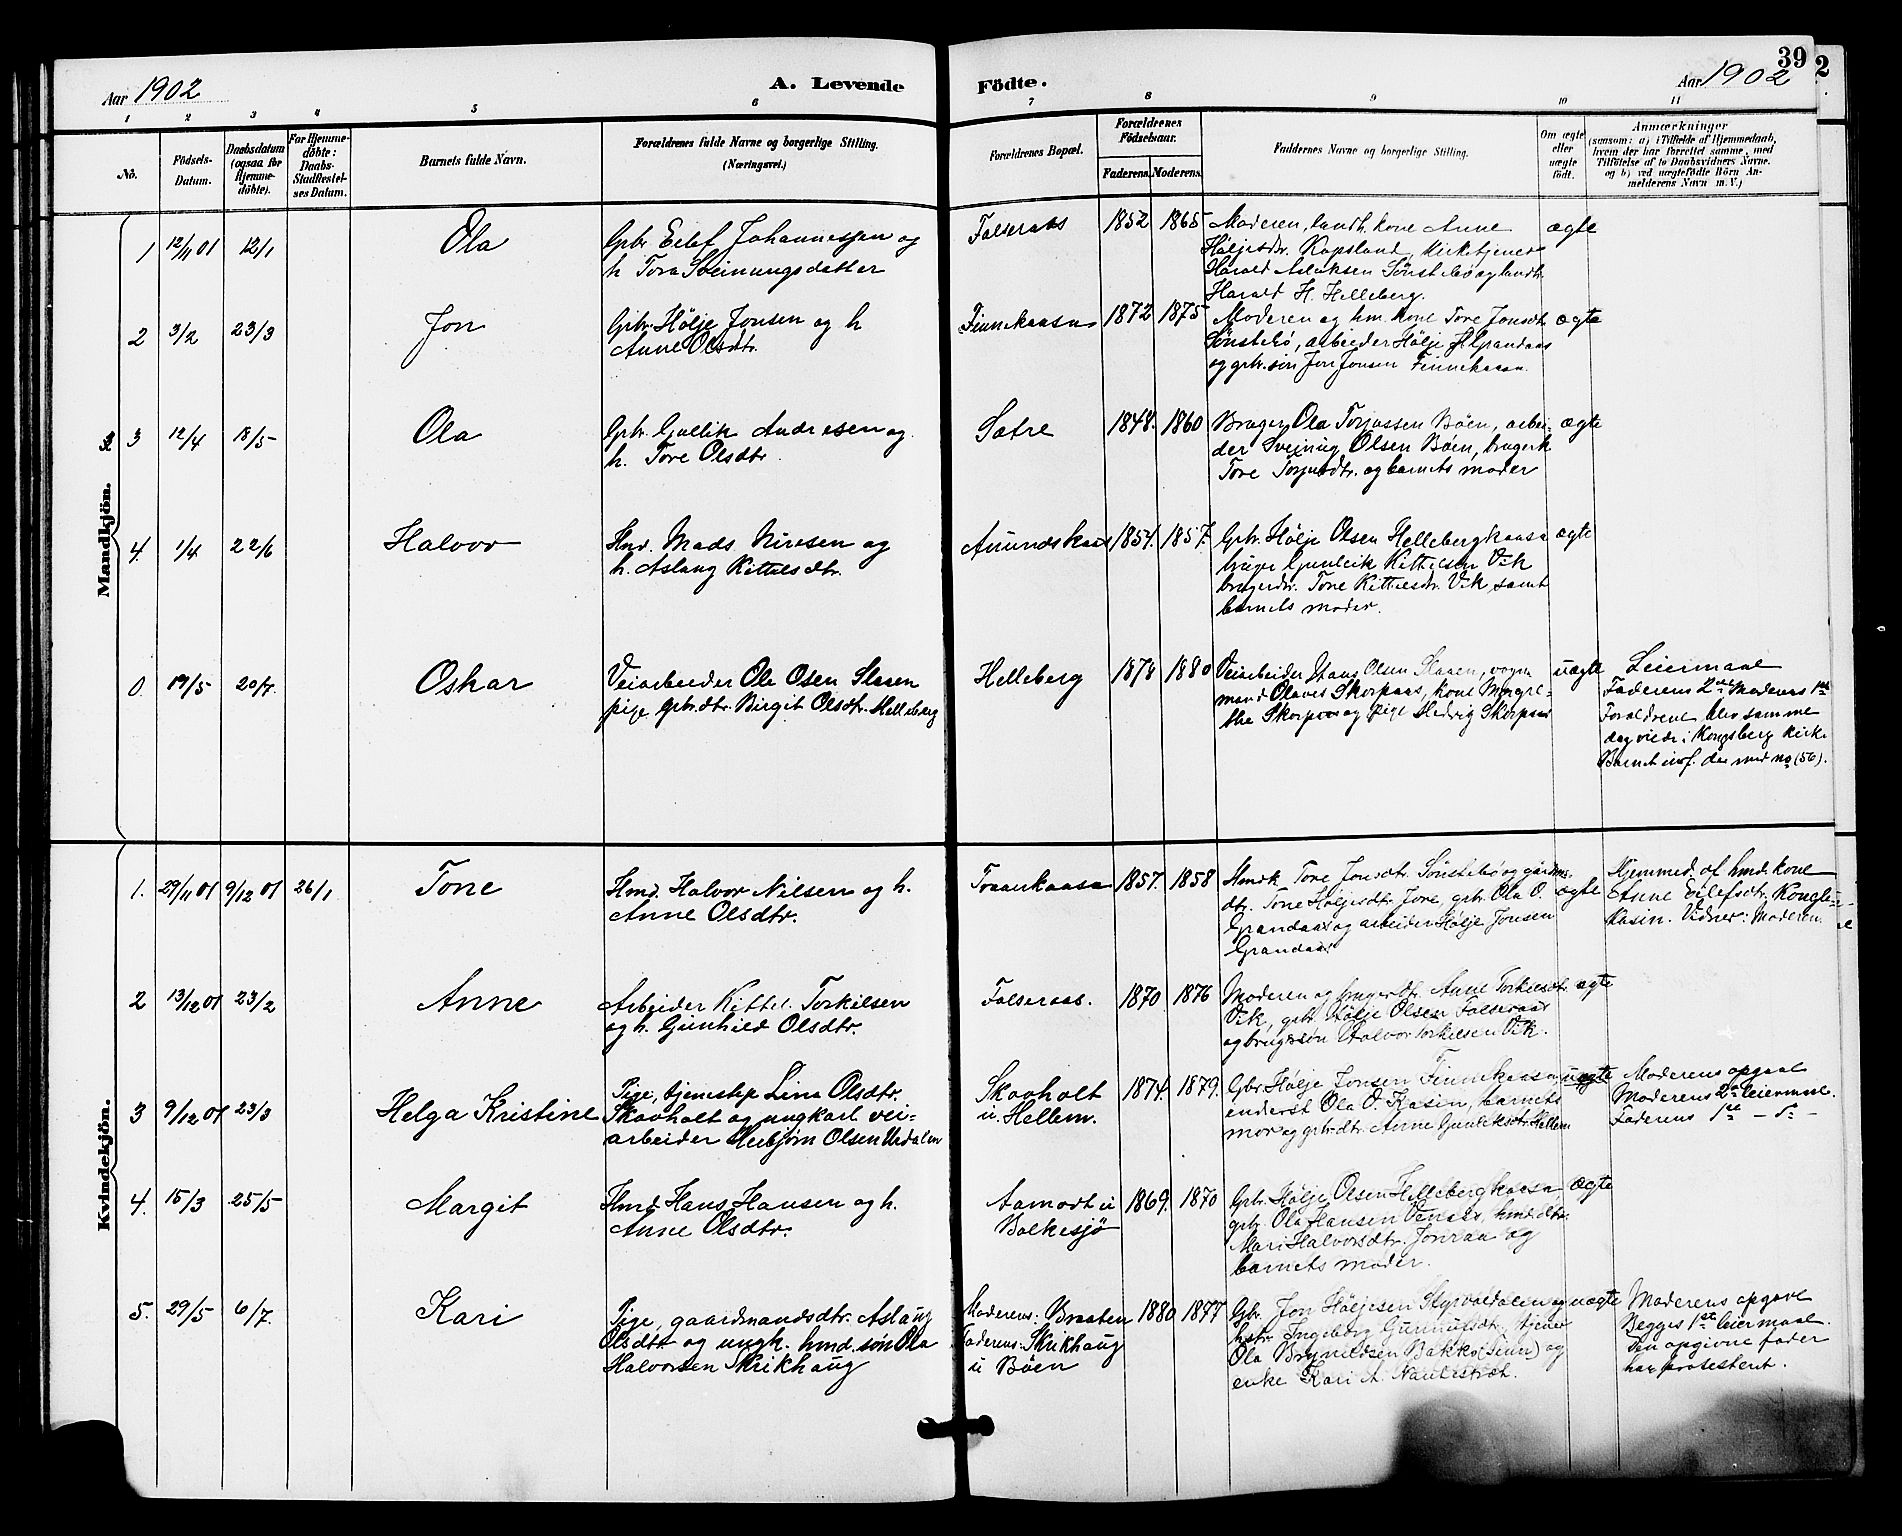 39
2
Aar 1902
A. Levende Födte.
Aar 1902
1 2 3 4 5 6 7 8 9 10 11
No.
Födsels-Datum.
Daabsdatum (ogsaa for Hjemme-döbte).
For Hjemme-döbte: Daabs-Stadfæstel-ses Datum.
Barnets fulde Navn.
Forældrenes fulde Navne og borgerlige Stilling. (Næringsvei.)
Forældrenes Bopæl.
Forældrenes Födselsaar.
Faderens. Moderens.
Faddernes Navne og borgerlige Stilling.
Om ægte eller uægte födt.
Anmærkninger
(saasom: a) i Tilfælde af Hjemmedaab, hvem der har forrettet samme, med Tilföielse af to Daabsvidners Navne. og b) ved uægtefödte Börn An-melderens Navn m. V.)
Mandkjön.
1 12/11 01 12/1
Ola
Gbr. Eilef Johannesen og
h Tora Sveinungsdatter
Falseraas
1852 1865
Moderen, landh. kone Anne
Höljesdr. Kopsland, kirketjener
Harald Aslaksen Sönstebö og landh.
Harald H. Helleberg.
ægte
2 3/2 23/3
Jon
Gbr. Hölje Jonsen og h
Anne Olsdtr.
Finnekaasa
1872 1875
Moderen og hm. kone Tore Jonsdt.
Sönstebö, arbeider Hölje H Grandaas
og gbr. sön Jon Jonsen Finnekaasa.
ægte
3 12/4 18/5
Ola
Gbr. Gullik Andresen og
h. Tore Olsdtr.
Sætre
1848. 1860
Bruger Ola Torjussen Böen, arbei-
der Sveinug Olsen Böen, brugerk
Tore Torjusdtr. og barnets moder
ægte
4. 1/4 22/6
Halvor
Hmd. Mads Nirisen og
h. Aslaug Kittilsdtr.
Amundskaas
1854. 1857.
Gbr. Hölje Olsen Hellebergkaasa
bruger Gunleik Kittilsen Vik
brugerdtr. Tone Kittilsdtr. Vik samt
barnets moder.
ægte
0. 19/5 20/7.
Oskar
Veiarbeider Ole Olsen Slaaen
pige gbr.dtr. Birgit Olsdtr. Helleberg
Helleberg
1878 1880
Veiarbeider Hans Olsen Slaaen, vogn
mand Olaves Skorpaas, kone Margre-
the Skorpaas og pige Hedvig Skorpaas
uægte
Leiermaal
Faderens 2det Moderens 1ste
Forældrene blev samme
dag viede i Kongsberg kirke
Barnet inf. der med no (56).
Kvindekjön.
1. 29/11 01 9/12 01 26/1
Tone
Hmd. Halvor Nilsen og h.
Anne Olsdtr.
Traankaasa
1857. 1858
Hmdk Tore Jonsdtr. Sönstebö og gårdm.
dtr. Tone Höljesdtr. Jore, gbr. Ola O.
Grandaas og arbeider Hölje Jonsen
Grandaas
ægte
Hjemmed. af hmd. kone
Anne Eilefsdtr. Kongle-
kasin. Vidner: Moderen
2 13/12 01 23/2
Anne
Arbeider Kittel Torkilsen
og h. Gunhild Olsdtr.
Falseraas.
1870. 1876
Moderen og brugerdtr. Anne Torkilsdtr.
Vik, gbr. Hölje Olsen Falseraas
og brugersön Halvor Torkilsen Vik.
ægte
3 9/12 01 23/3
Helga Kristine
Pige, tjenestep Lina Olsdtr.
Skavholt og ungkarl vei-
arbeider Herbjörn Olsen Urdalen
Skavholt
u. Hellem.
1874. 1879.
Gbr. Hölje Jonsen Finnekaasa
enderst Ola O. Kasin, barnets
mor og gbr.dtr. Anne Gunleiksdtr. Hellem
uægte
Moderens opgave
Moderens 2det leiermaal.
Faderens 1ste
4. 15/3 25/5
Margit
Hmd. Hans Hansen og h.
Anne Olsdtr.
Aamodt u
Bolkesjö
1869. 1870
Gbr. Hölje Olsen Hellebergkaasa,
gbr. Ola Hansen Venaas, hmd.dtr.
Mari Halvorsdtr. Jonraa og
barnets moder.
ægte
5. 29/5 6/7.
Kari
Pige, gaardmandsdtr. Aslaug
Olsdtr. og ungk. hmd. sön Ola
Halvorsen Skrikhaug
Moderens: Braaten
Faderens: Skrikhaug
u Böen
1880 1877
Gbr. Jon Höljesen Styrvoldalen og
hstr. Ingeborg Gunnufsdtr., tjener
Ola Brynildsen Bakko (Tinn) og
enke Kari A. Naulestræt.
uægte
Moderens opgave
Begges 1ste leiermaal.
Den opgivne fader
har protesteret.